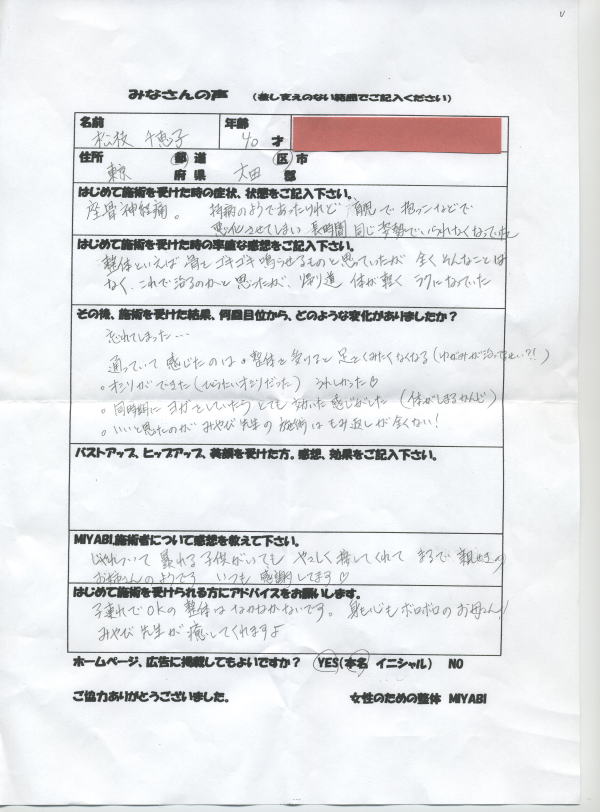 みなさんの声 (差し支えのない範囲でご記入ください)
名前 松枝 千恵子 年齢 40 才
住所 東京 都 道 府 県 大田 区 市 郡
はじめて施術を受けた時の症状、状態をご記入下さい。
座骨神経痛。 持病のようであったけれど 育児で抱っこなどで
悪化させてしまい 長時間 同じ姿勢でいられなくなっていた
はじめて施術を受けた時の率直な感想をご記入下さい。
整体といえば 骨を ゴキゴキ 鳴らせるものと思っていたが 全く そんなことは
なく、これで治るのかと 思ったが、帰り道 体が軽く ラクになっていた
その後、施術を受けた結果、何回目位から、どのような変化がありましたか?
忘れてしまった…
通っていて 感じたのは 。整体を 受けると 足をくみたくなくなる (ゆがみが治ってるせい?!)
。オシリができた (ひらたいオシリだった) うれしかった♡
。同時期に ヨガをしていたら とても 効いた感じがした (体がしまるかんじ)
。いいと思たのが みやび先生の 施術は もみ返しが全くない!
バストアップ、ヒップアップ、美顔を受けた方。感想、効果をご記入下さい。
MIYABI,施術者について感想を教えて下さい。
じゃれついて 暴れる子供がいても やさしく 接してくれて まるで 親せきの
お姉さんのようです いつも 感謝してます♡
はじめて施術を受けられる方にアドバイスをお願いします。
子連れでOKの 整体は なかなかないです。 身も心もボロボロのお母さん!
みやび先生が 癒してくれますよ
ホームページ、広告に掲載してもよいですか? YES(本名 イニシャル) NO
ご協力ありがとうございました。 女性のための整体 MIYABI